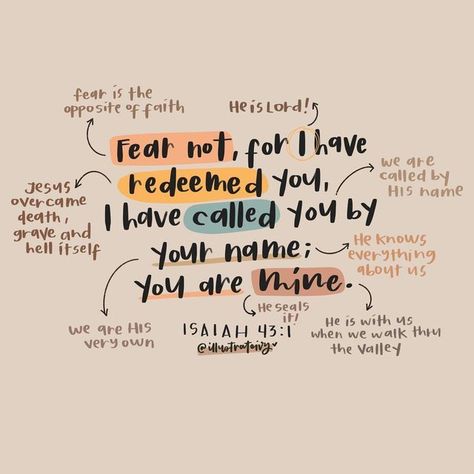 fear is the
opposite of faith
He is Lord!
Fear not, for I have
redeemed you,
I have called you by
your name;
you are mine.
Jesus
overcame
death,
grave and
hell itself
we are
called by
His name
He knows
everything
about us
we are His
very own
He seals
it!
He is with us
when we walk thru
the Valley
ISAIAH 43:1
@illustrateivy